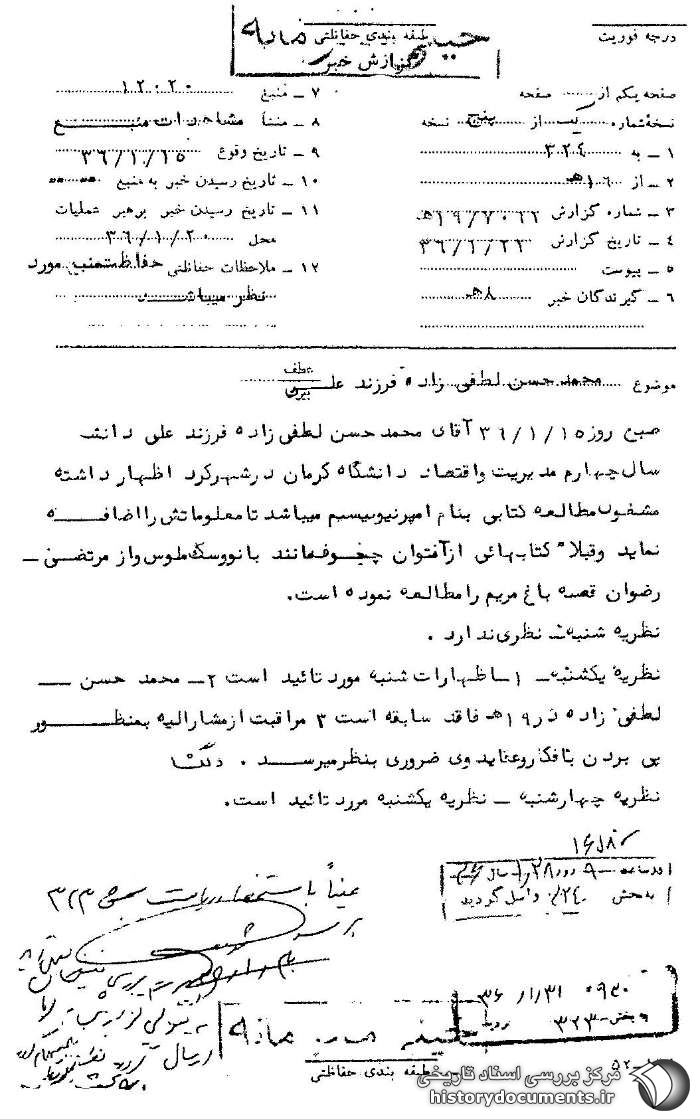 درجه فوریت
طبقه بندی حفاظتی
گزارش خبر
صفحه یکم از صفحه
نسخهٔ شماره یک از پنج نسخه
۱ ـ به ۳۲۴
۲ ـ از ۱۶ هـ
۳ ـ شماره گزارش
۴ ـ تاریخ گزارش ۳۶/۱/۲۲
۵ ـ پیوست
۶ ـ گیرندگان خبر ۸ هـ
۷ ـ منبع ۱۲۰۲۰
۸ ـ منشأ مشاهدات منبع
۹ ـ تاریخ وقوع ۳۶/۱/۱۵
۱۰ ـ تاریخ رسیدن خبر به منبع
۱۱ ـ تاریخ رسیدن خبر برهبر عملیات
محل ۳۶/۱/۲۰
۱۲ ـ ملاحظات حفاظتی حفاظت منبع مورد
نظر میباشد
موضوع محمد حسن لطفی زاده فرزند علی
عطف
پیرو
صبح روز ۳۶/۱/۱۵ آقای محمد حسن لطفی زاده فرزند علی دانش
سال چهارم مدیریت واقتصاد دانشگاه کرمان درشهرکرد اظهار داشته
مشغول مطالعه کتابی بنام امپرنیوسیسم میباشد تا معلوماتش را اضافه
نماید وقبلا" کتابهائی ازآنتوان چخوف مانند بانووسگ ملوس واز مرتضی ـ
رضوان قصه باغ مریم را مطالعه نموده است.
نظریه شنبه ـ نظری ندارد .
نظریه یکشنبه ـ ۱ـ اظهارات شنبه مورد تائید است ۲ـ محمد حسن ـ
لطفی زاده در ۱۹ هـ فاقد سابقه است ۳ مراقبت ازمشارالیه بمنظور
پی بردن بافکار وعقاید وی ضروری بنظر میرسد .
نظریه چهارشنبه ـ نظریه یکشنبه مورد تائید است.
عیناً با استحضار ریاست بخش ۳۲۳
برسد
واصل گردید
به بخش ۳۲۳
طبقه بندی حفاظتی
مرکز بررسی اسناد تاریخی
historydocuments.ir